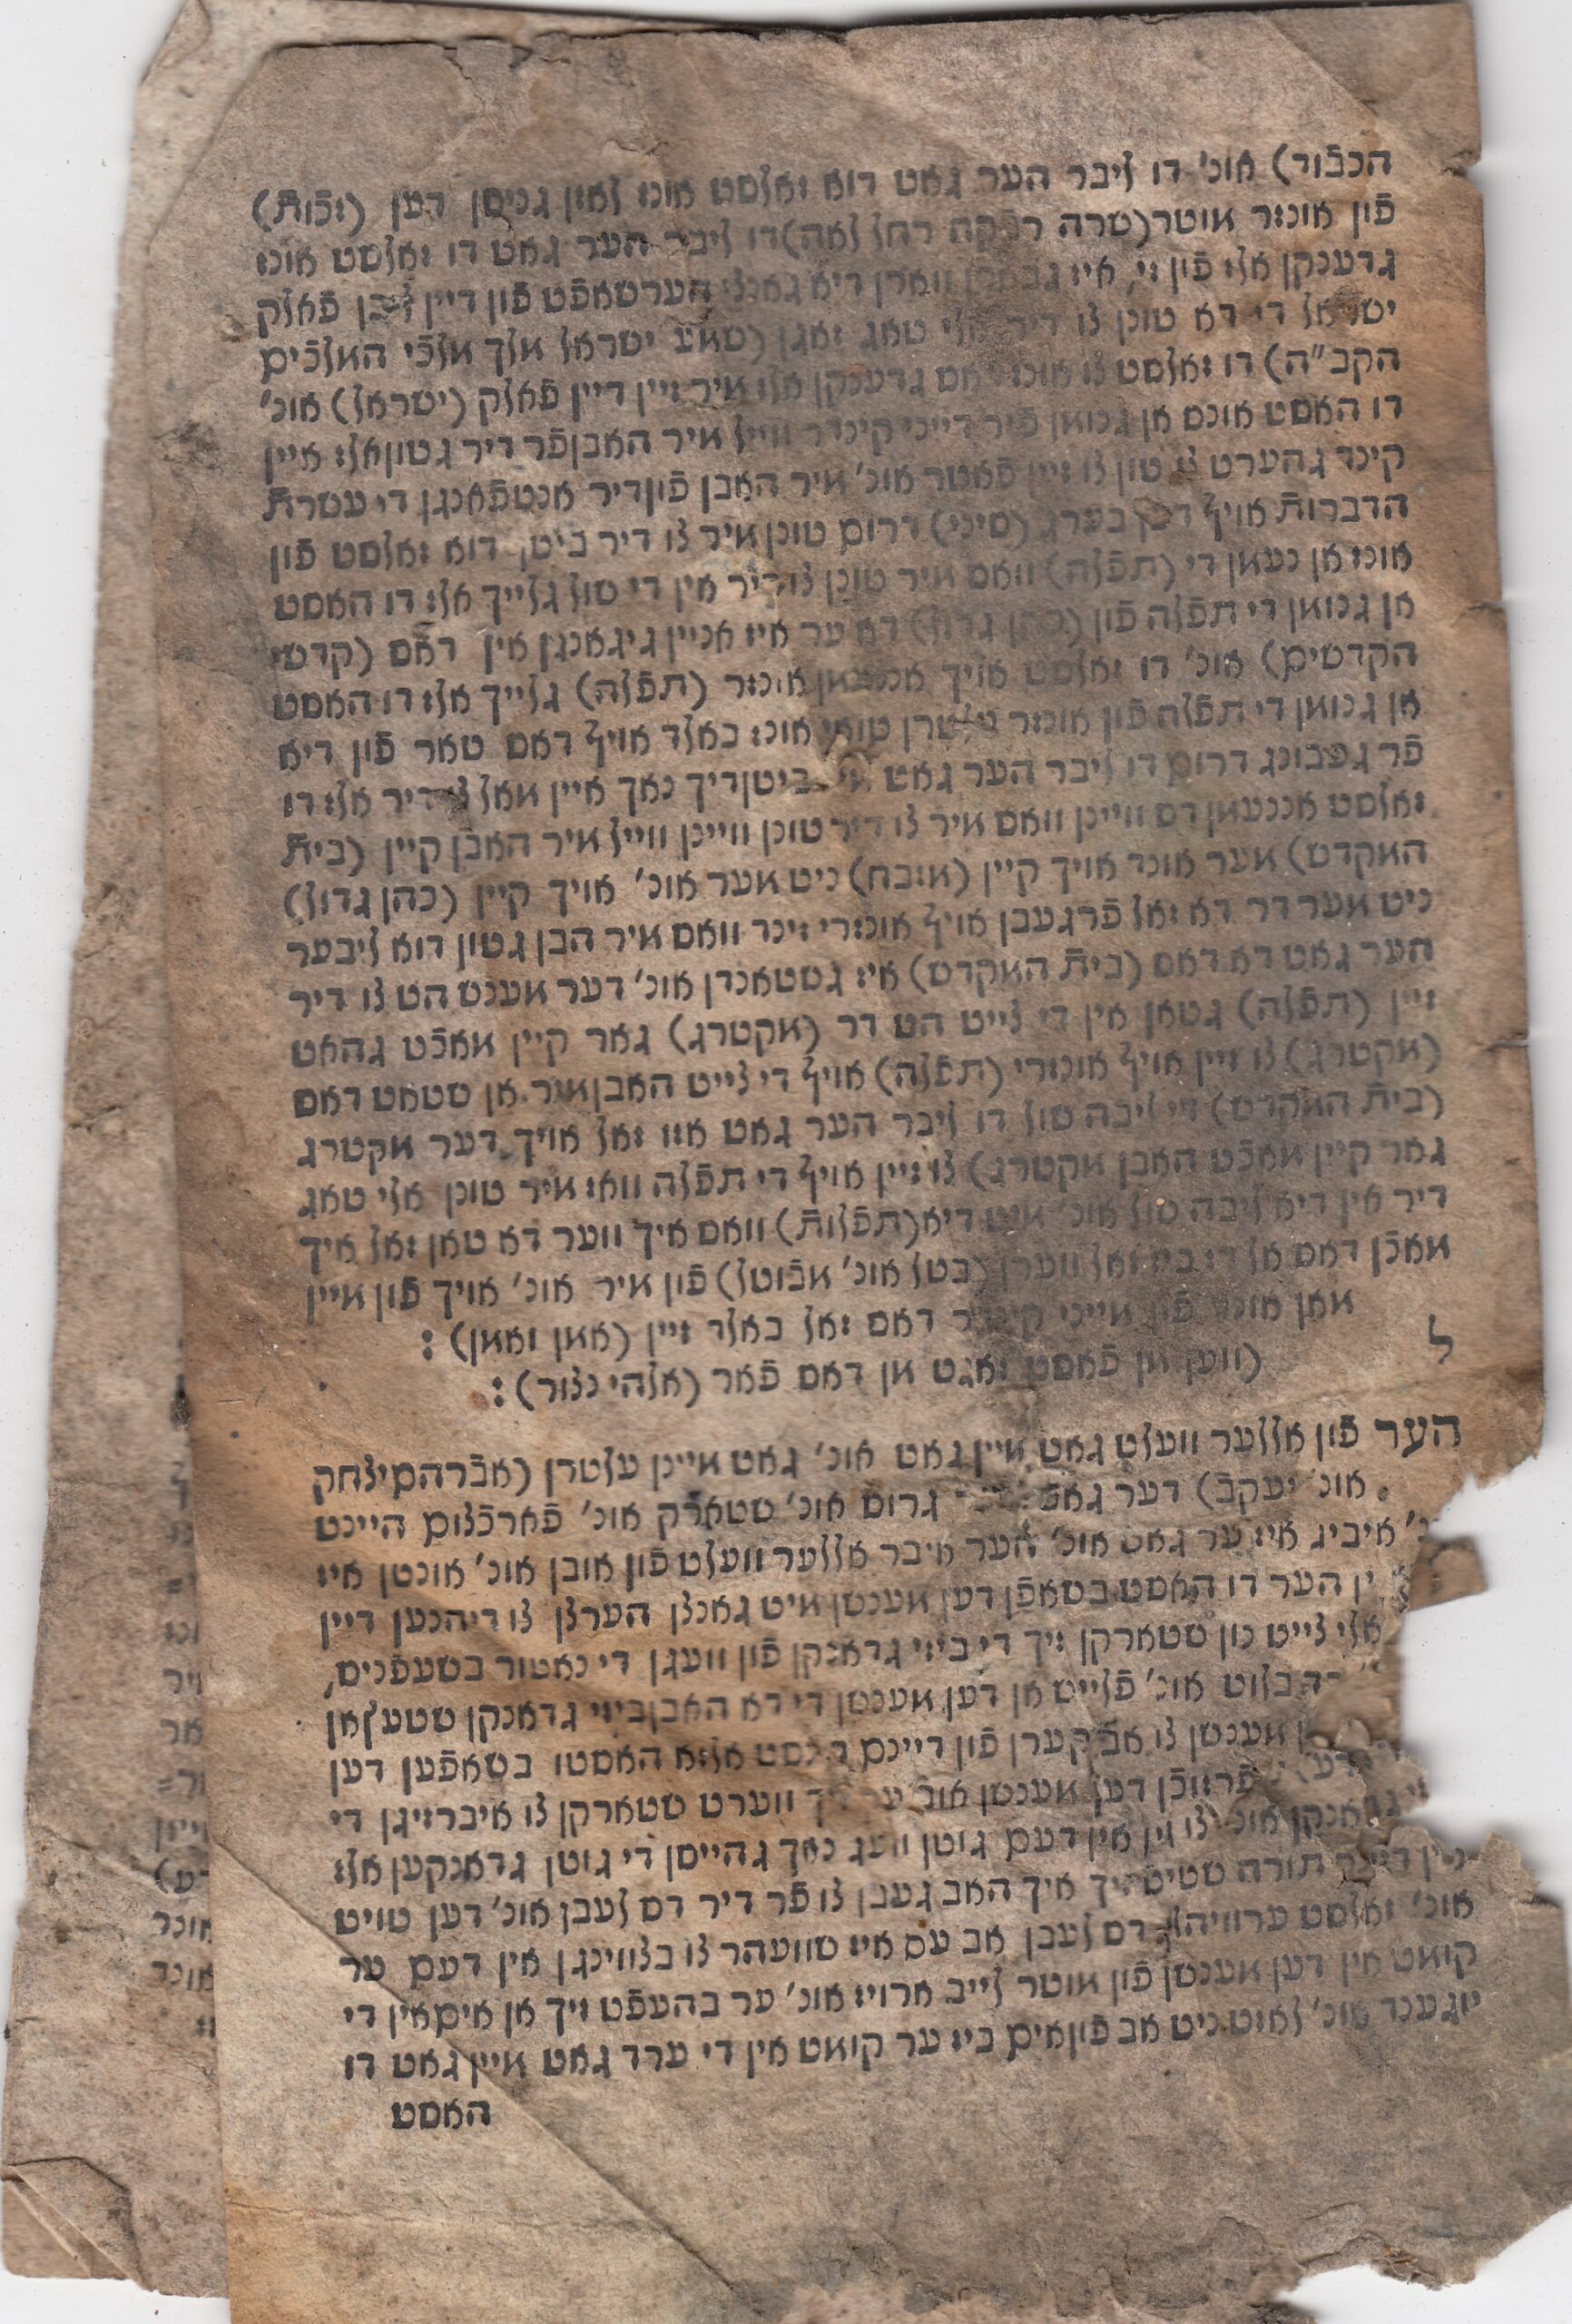 הכבֿוד) אונ' דו ליבר הער גאט דוא זאלסט אונז לאזן גניסן דען (זכֿותֿ)
פֿון אונזר מוטר (שרה רבֿקה רחל לאה) דו ליבר הער גאט דו זאלסט אונז
גדענקן אלז פֿון זי, איז ווארן דיא גאנצי הערשאפֿט פֿון דיין ליבן פֿאלק
ישראל די דא טוען צו דיר אלי טאג זאגן (שמע ישראל מלך מלכֿי המלכֿים
הקב"ה) דו זאלסט צו אונז דאס גדענקן אלז מיר זיין דיין פֿאלק (ישראל) אונ'
דו האסט אונס אן גנומן פֿיר דייני קינדר ווייל מיר האבן פֿר דיר גטון אלז איין
קינד גהערט צו טון צו זיין פֿאטר אונ' מיר האבן פֿון דיר אנטפֿאנגן די עשרתֿ
הדברותֿ אויף דען בערג (סיני) דרום טוען מיר צו דיר ביטן דוא זאלסט פֿון
אונז אן נעמן די (תפֿלה) וואס מיר טוען צו דיר אין די שול גלייך אלז דו האסט
אן גנומן די תפֿלה פֿון (כהן גדול) דא ער איז אניין גיגאנגן אין דאס (קדשי
הקדשים) אונ' דו זאלסט אויך אננעמן אונזר (תפֿלה) גלייך אלז דו האסט
אן גנומן די תפֿלה פֿון אונזר עלטרן אונז באלד אויף דאס טאר פֿון דיא
פֿר געבונג דרום דו ליבר הער גאט מיר ביטן דיך נאך איין מאל צו דיר אלז דו
זאלסט אננעמן דס וויינן וואס מיר צו דיר טוען וויינן ווייל מיר האבן קיין (ביתֿ
המקדש) מער אונד אויך קיין (מזבח) ניט מער אונ' אויך קיין (כהן גדול)
ניט מער דר דא זאל פֿרגעבן אויף אונזרי זינד וואס מיר הבן גטון דוא ליבער
הער גאט דא דאס (ביתֿ המקדש) איז גשטאנדן אונ' דער מענש הט צו דיר
זיין (תפֿלה) גטאן אין די צייט הט דר (מקטרג) גאר קיין מאכֿט גהאט
(מקטרג) צו זיין אויף אונזרי (תפֿלה) אויף די צייט האבן מיר אן שטאט דאס
(ביתֿ המקדש) די ליבה שול דו ליבר הער גאט אזו זאל אויך דער מקטרג
גאר קיין מאכֿט האבן מקטרג) צו זיין אויף די תפֿלה וואז מיר טוען אלי טאג
דיר אין דיא ליבה שול אונ' מיט דיא (תפֿלותֿ) וואס איך ווער דא טאן זאל איך
מאכֿן דאס אלדז ביז זאל ווערן (בטל אונ' מבֿוטל) פֿון מיר אונ' אויך פֿון מיין
מאן אונד פֿון מייני קינדר דאס זאל באלד זיין (אמן ואמן) :
(ווען מן פֿאסט זאגט מן דאס פֿאר (אלהי נצור) : ל
הער פֿון אללער וועלט גאט מיין גאט אונ' גאט מיינן עלטרן (אבֿרהם יצחק
אונ' יעקבֿ) דער גאט גרוס אונ' שטארק אונ' פֿארכֿצום היינט
אונ' איביג איז ער גאט אונ' הער איבר אללער וועלט פֿון אובן אונ' אונטן איז
הער דו האסט בשאפֿן דען מענשן מיט גאנצן הערצן צו דיהנען דיין
אלי צייט נון שטארקן זיך די ביזי גדאנקן פֿון וועגן די נאטור בשעפֿניס,
בלוט אונ' פֿלייש אן דען מענשן די דא האבן ביזי גדאנקן שטעלאן
מענשן צו אבֿ קערן פֿון דיינם אלזא האסטו בשאפֿען דען
פֿרזוכֿן דען מענשן אוב ער זיך ווערט שטארקן צו איברזיגן די
גדאנקן אונ' צו זיין אין דעם גוטן וועג נאך גהייסן די גוטן גדאנקען אלז
אין דיינר תורה שטיט איך האב געבן צו פֿר דיר דס לעבן אונ' דען טויט
אונ' זאלסט ערוויהלן דס לעבן אב עס איז שווער צו בצווינגן אין דעם ער
קומט אין דען מענשן פֿון מוטר לייב ארויז אונ' ער בהעפֿט זיך אן אים אין די
יוגענד אונ' לאזט ניט אב פֿון אים ביז ער קומט אין די ערד גאט מיין גאט דו
האסט